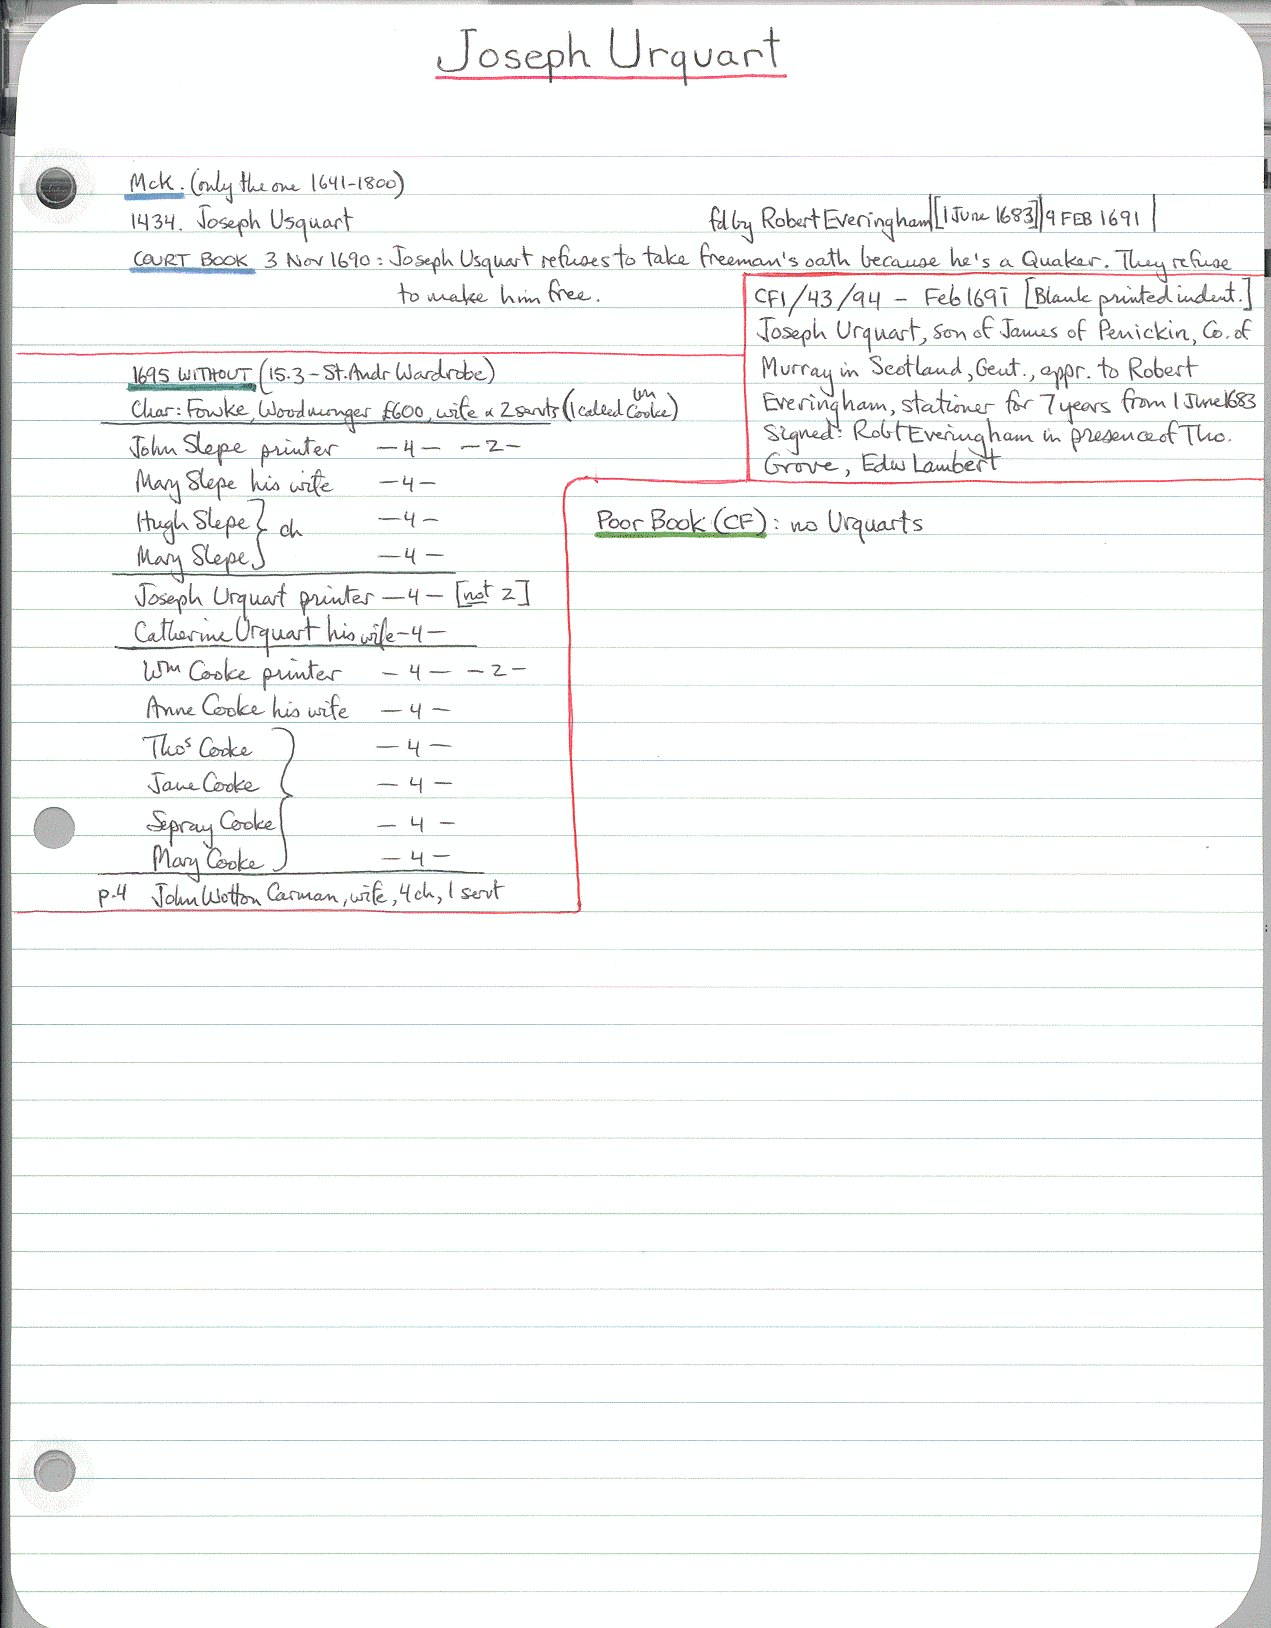 Joseph Urquart
McK. (only the one 1641-1800)
1434. Joseph Usquart fd by Robert Everingham |[1 June 1683]| 9 FEB 1691 |
COURT BOOK 3 Nov 1690: Joseph Usquart refuses to take freeman's oath because he's a Quaker. They refuse
to make him free.
CF1/43/94 - Feb 1691 [Blank printed indent.]
Joseph Urquart, son of James of Penickin, Co. of
Murray in Scotland, Gent., appr. to Robert
Everingham, stationer for 7 years from 1 June 1683
Signed: Robt Everingham in presence of Tho.
Grove, Edw Lambert
1695 WITHOUT (15.3 - St. Andr Wardrobe)
Char: Fowke, Woodmonger £600, wife & 2 servts (1 called Cooke)
John Slepe printer -4- -2-
Mary Slepe his wife -4-
Hugh Slepe } ch -4-
Mary Slepe -4-
Joseph Urquart printer -4- [not 2]
Catherine Urquart his wife -4-
Wm Cooke printer -4- -2-
Anne Cooke his wife -4-
Thos Cooke -4-
Jane Cooke -4-
Sepray Cooke -4-
Mary Cooke -4-
p.4 John Wotton Carman, wife, 4 ch, 1 servt
Poor Book (CF): no Urquarts